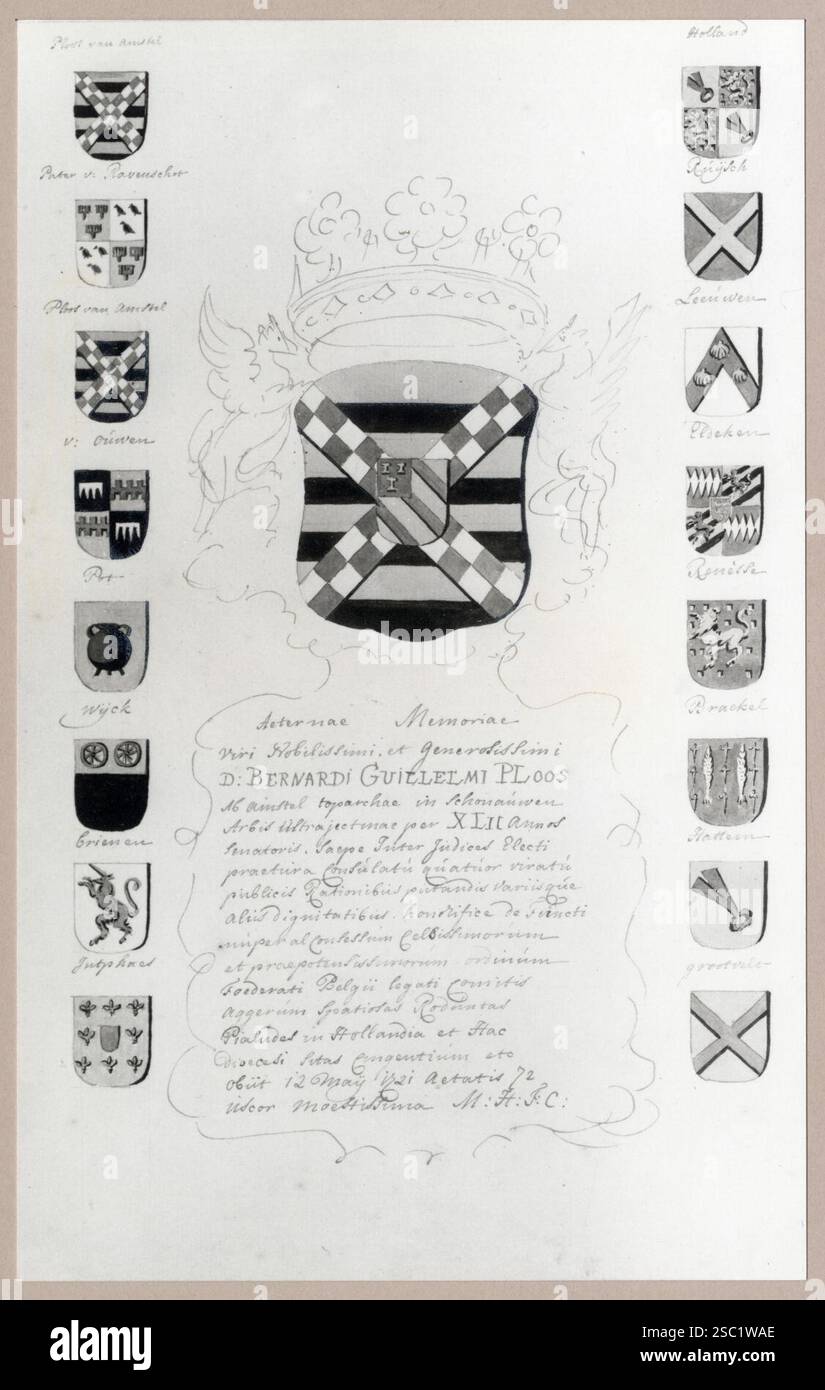 Ploos van Amstel
Pater v: Ravenschot
Ploos van Amstel
v: Oúwen
Pot
Wÿck
Brienen
Jutphaes
Holland
Rúÿsch
Leeúwen
Eldeken
Renèsse
Brackel
Hattem
grootvelt
Aeternae Memoriae
Viri Nobilissimi et Generosissimi
D: BERNARDI GUILLELMI PLOOS
Ab Amstel toparchae in Schonaúwen
Urbis Ultrajectinae per XLII Annos
Senatoris. Saepe Inter Júdices Electi
praetura Consúlatú qúatúor viratú
publicis Rationibús putandis variisqúe
Aliis dignitatibús honorifice de Fúncti
núper al Consessúm Celsissimorúm
et praepotentissimorúm ordinúm
Foederati Belgii legati Comitis
Aggerúm Spatiosas
in Hollandia et Hac
Dioecesi Sitas Cingentiúm etc
Obiit 12 Maÿ 1721 Aetatis 72
Uxor Moestissima M: H: F: C:
alamy
www.alamy.com
Image ID: 2SC1WAE